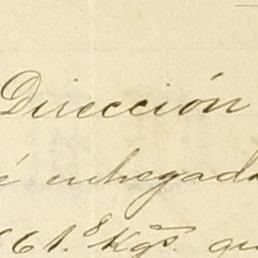 Dirección
é entregada
661.8 Kgs. qu